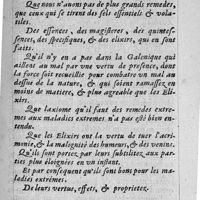 Que nous n'avons pas de plus grands remedes,
que ceux qui se tirent des sels essentiels & vola-
tiles.
Des essences, des magisteres, des quintes-
sences, des specifiques, & des elixirs, qui en sont
faits.
Qu'il n'y en a pas dans la Galenique qui
aillent au mal par une vertu de presence, dont
la force soit recueillie pour combatre un mal au
dessus de la nature, & qui soient ramassez en
moins de matiere, & plus agreable que les Eli-
xirs.
Que l'axiome qu'il faut des remedes extre-
mes aux maladies extremes n'a pas esté bien en-
tendu.
Que les Elixirs ont la vertu de tuer l'acri-
monie, & la malignité des humeurs, & des venins.
Qu'ils sont portez par leurs subtilitez aux par-
ties plus éloignées en un instant.
Et par consequent qu'ils sont bons pour les ma-
ladies extremes.
De leurs vertus, effets, & proprietez.